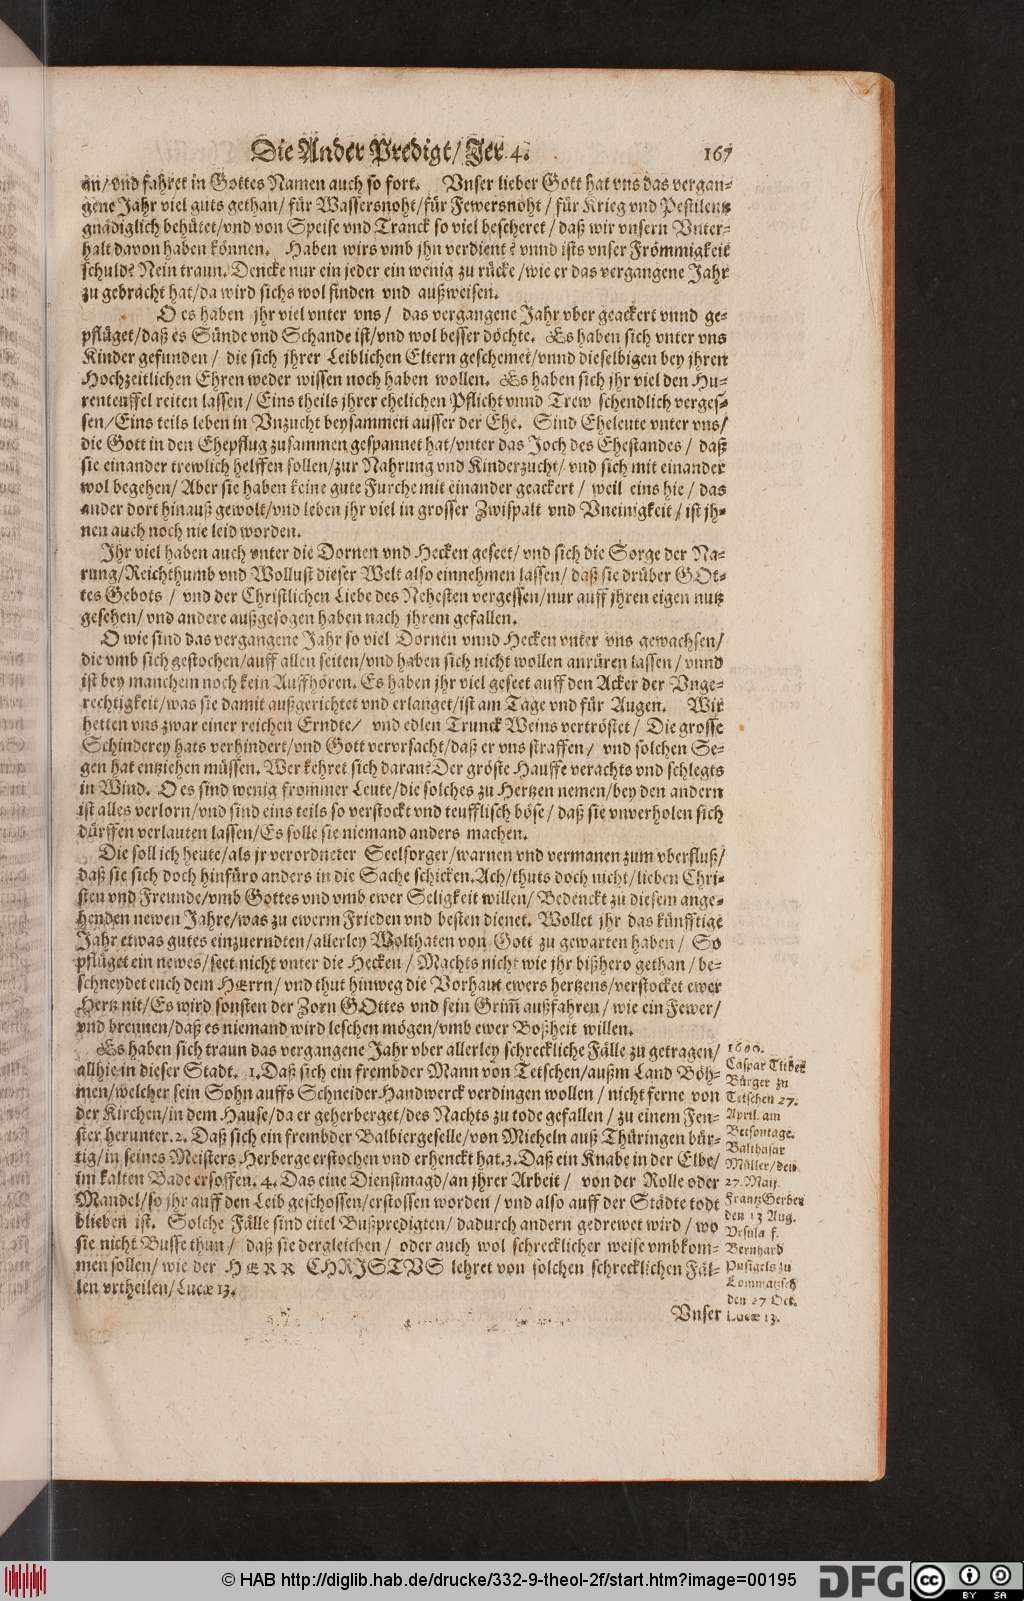 Die Ander Predigt/ Jer. 4.
167
an/ vnd fahret in Gottes Namen auch so fort. Vnser lieber Gott hat vns das vergan-
gene Jahr viel guts gethan/ für Wassersnoht/ für Fewersnoht/ für Krieg vnd Pestilentz
gnädiglich behütet/ vnd von Speise vnd Tranck so viel bescheret/ daß wir vnsern Vnter-
halt davon haben können. Haben wirs vmb jhn verdient? vnnd ists vnser Frömmigkeit
schuld? Nein traun. Dencke nur ein jeder ein wenig zu rücke/ wie er das vergangene Jahr
zu gebracht hat/ da wird sichs wol finden vnd außweisen.
O es haben jhr viel vnter vns/ das vergangene Jahr vber geackert vnnd ge-
pflüget/ daß es Sünde vnd Schande ist/ vnd wol besser döchte. Es haben sich vnter vns
Kinder gefunden/ die sich jhrer Leiblichen Eltern geschemet/ vnnd dieselbigen bey jhren
Hochzeitlichen Ehren weder wissen noch haben wollen. Es haben sich jhr viel den Hu-
renteuffel reiten lassen/ Eins theils jhrer ehelichen Pflicht vnnd Trew schendlich verges-
sen/ Eins teils leben in Vnzucht beysammen ausser der Ehe. Sind Eheleute vnter vns/
die Gott in den Ehepflug zusammen gespannet hat/ vnter das Joch des Ehestandes/ daß
sie einander trewlich helffen sollen/ zur Nahrung vnd Kinderzucht/ vnd sich mit einander
wol begehen/ Aber sie haben keine gute Furche mit einander geackert/ weil eins hie/ das
ander dort hinauß gewolt/ vnd leben jhr viel in grosser Zwispalt vnd Vneinigkeit/ ist jh-
nen auch noch nie leid worden.
Ihr viel haben auch vnter die Dornen vnd Hecken geseet/ vnd sich die Sorge der Na-
rung/ Reichthumb vnd Wollust dieser Welt also einnehmen lassen/ daß sie drüber GOt-
tes Gebots/ vnd der Christlichen Liebe des Nehesten vergessen/ nur auff jhren eigen nutz
gesehen/ vnd andere außgesogen haben nach jhrem gefallen.
O wie sind das vergangene Jahr so viel Dornen vnnd Hecken vnter vns gewachsen/
die vmb sich gestochen/ auff allen seiten/ vnd haben sich nicht wollen anrüren lassen/ vnnd
ist bey manchem noch kein Auffhören. Es haben jhr viel geseet auff den Acker der Vnge-
rechtigkeit/ was sie damit außgerichtet vnd erlanget/ ist am Tage vnd für Augen. Wir
hetten vns zwar einer reichen Erndte/ vnd edlen Trunck Weins vertröstet/ Die grosse
Schinderey hats verhindert/ vnd Gott vervrsacht/ daß er vns straffen/ vnd solchen Se-
gen hat entziehen müssen. Wer kehret sich daran? Der gröste Hauffe verachts vnd schlegts
in Wind. O es sind wenig frommer Leute/ die solches zu Hertzen nemen/ bey den andern
ist alles verlorn/ vnd sind eins teils so verstockt vnd teufflisch böse/ daß sie vnverholen sich
dürffen verlauten lassen/ Es solle sie niemand anders machen.
Die soll ich heute/ als jr verordneter Seelsorger/ warnen vnd vermanen zum vberfluß/
daß sie sich doch hinfüro anders in die Sache schicken. Ach/ thuts doch nicht/ lieben Chri-
sten vnd Freunde/ vmb Gottes vnd vmb ewer Seligkeit willen/ Bedenckt zu diesem ange-
henden newen Jahre/ was zu ewerm Frieden vnd besten dienet. Wollet jhr das künfftige
Jahr etwas gutes einzuerndten/ allerley Wolthaten von Gott zu gewarten haben/ So
pflüget ein newes/ seet nicht vnter die Hecken/ Machts nicht wie jhr bißhero gethan/ be-
schneydet euch dem HErrn/ vnd thut hinweg die Vorhaut ewers hertzens/ verstocket ewer
Hertz nit/ Es wird sonsten der Zorn GOttes vnd sein Grim̃ außfahren/ wie ein Fewer/
vnd brennen/ daß es niemand wird leschen mögen/ vmb ewer Boßheit willen.
Es haben sich traun das vergangene Jahr vber allerley schreckliche Fälle zu getragen/
allhie in dieser Stadt. 1. Daß sich ein frembder Mann von Tetschen/ außm Land Böh-
men/ welcher sein Sohn auffs Schneider Handwerck verdingen wollen/ nicht ferne von
der Kirchen/ in dem Hause/ da er geherberget/ des Nachts zu tode gefallen/ zu einem Fen-
ster herunter. 2. Daß sich ein frembder Balbiergeselle/ von Micheln auß Thüringen bür-
tig/ in seines Meisters Herberge erstochen vnd erhenckt hat. 3. Daß ein Knabe in der Elbe/
im kalten Bade ersoffen. 4. Das eine Dienstmagd/ an jhrer Arbeit/ von der Rolle oder
Mandel/ so jhr auff den Leib geschossen/ erstossen worden/ vnd also auff der Städte todt
blieben ist. Solche Fälle sind eitel Bußpredigten/ dadurch andern gedrewet wird/ wo
sie nicht Busse thun/ daß sie dergleichen/ oder auch wol schrecklicher weise vmbkom-
men sollen/ wie der HERR CHRISTVS lehret von solchen schrecklichen Fäl-
len vrtheilen/ Lucæ 13.
Vnser
1600.
Caspar
Bürger zu
Tetschen 27.
April. am
Betsontage.
Balthasar
Müller/ den
27. Maij.
Frantz Gerber
den 13 Aug.
Vrsula f.
Bernhard
Pusigels zu
Lommatzsch
den 27 Oct.
Lucæ 13.
© HAB http://diglib.hab.de/drucke/332-9-theol-2f/start.htm?image=00195
DFG
cc
BY
SA